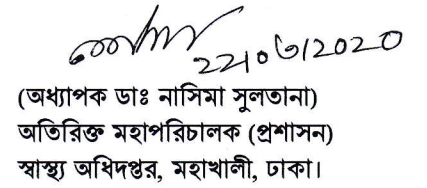 ২২/০৬/2020
(অধ্যাপক ডাঃ নাসিমা সুলতানা)
অতিরিক্ত মহাপরিচালক (প্রশাসন)
স্বাস্থ্য অধিদপ্তর, মহাখালী, ঢাকা।